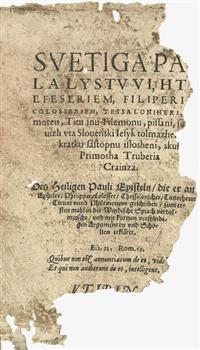 SVETIGA PA
LA LYSTVVI, HT
EFESERIEM, FILIPERI
COLOSSERIEM, TESSALONIHERI
moteu, Titu inu Filemonu, pissani, is
uizh vta Slouenski Iesyk tolmazhe
kratku sastopnu islosheni, skusi
Primosha Truberia
Crainza.
Des Heiligen Pauli Episteln/ die er an
Epheser/ Philipper/ Colosser/ Thessalonicher/ Timotheum
Titum vnnd Philemonem geschriben / zum er-
sten mahl in die Windische Sprach verdol-
metscht / vnd mit kurtzen verstendi-
gen Argumenten vnd Scho-
lien erkläret.
Esa. 52. Rom. 15.
Quibus non est annunciatum de eo, vide
Et qui non audierunt de eo, intelligent.